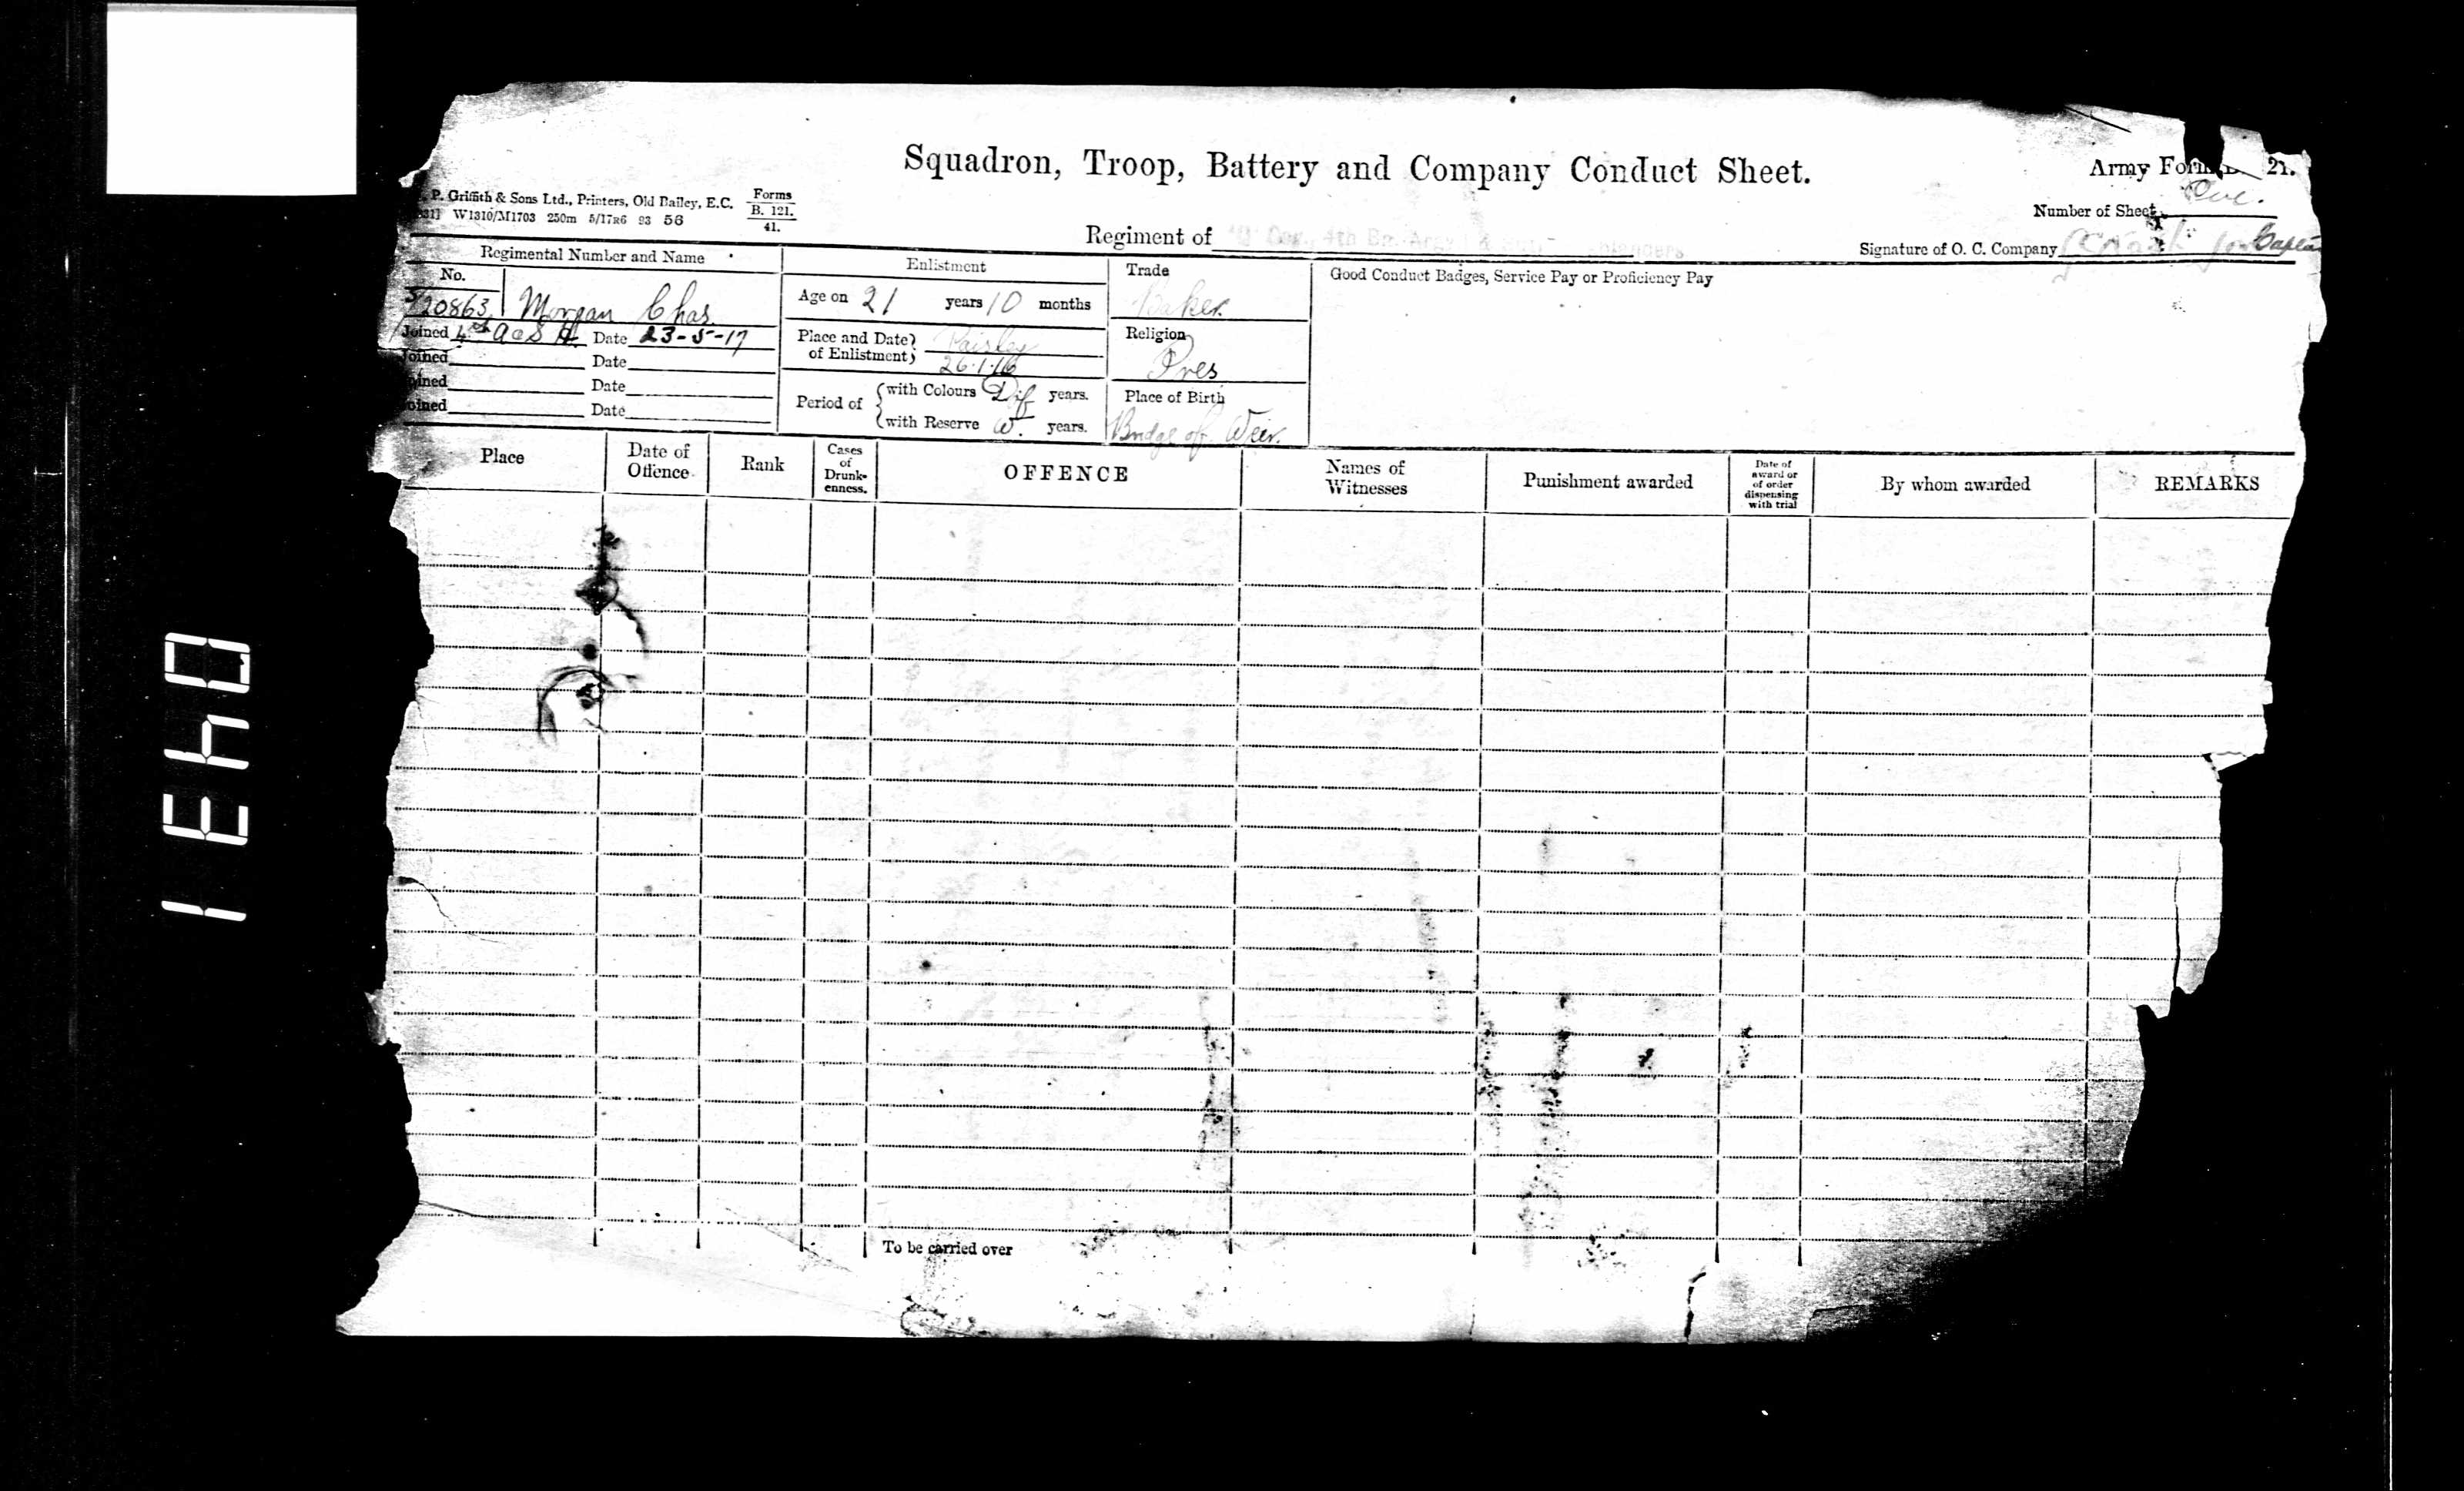 Squadron, Troop, Battery and Company Conduct Sheet.
Army Form 21.
P. Griffith & Sons Ltd., Printers, Old Bailey, E.C.
W1310/M1703 250m 5/17R6 93 56
Forms
B. 121.
41.
Number of Sheet
Regiment of 4th Bn.
Signature of O. C. Company Captain
Regimental Number and Name
No.
S/20863 Morgan Chas
Joined 4th A & S H. Date 23-5-17
Joined Date
Joined Date
Joined Date
Enlistment
Age on 21 years 10 months
Place and Date of Enlistment Paisley
26.1.16
Period of
with Colours D of years.
with Reserve W. years.
Trade
Baker
Religion
Pres
Place of Birth
Bridge of Weir.
Good Conduct Badges, Service Pay or Proficiency Pay
Place
Date of Offence
Rank
Cases of Drunk-enness.
OFFENCE
Names of Witnesses
Punishment awarded
Date of award or of order dispensing with trial
By whom awarded
REMARKS
To be carried over
0431